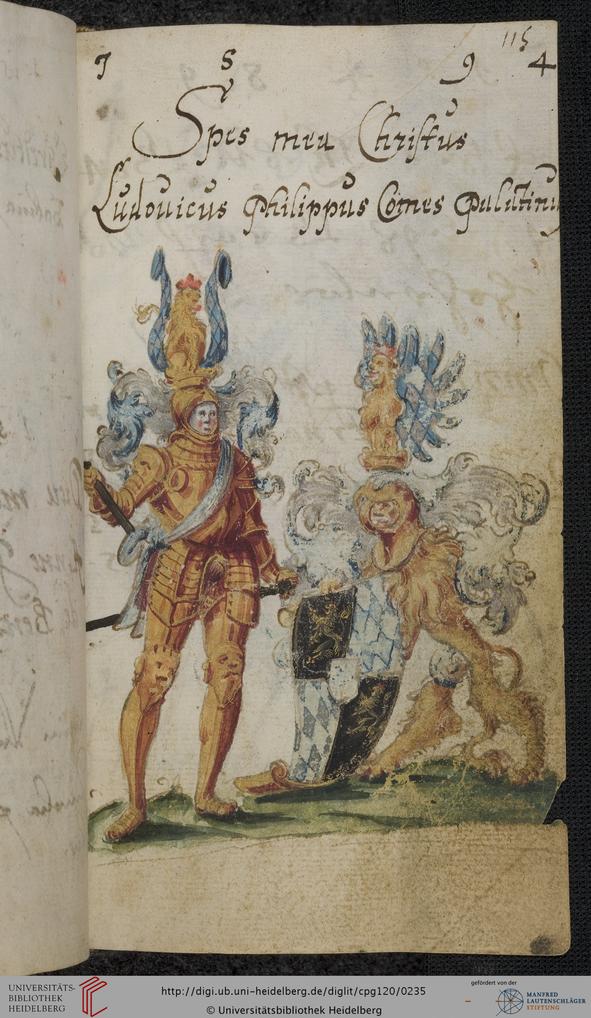 115
1 5 9 4
Spes mea Christus
Ludouicus Philippus Comes Palatinus
UNIVERSITÄTS-
BIBLIOTHEK
HEIDELBERG
http://digi.ub.uni-heidelberg.de/diglit/cpg120/0235
© Universitätsbibliothek Heidelberg
gefördert von der
MANFRED
LAUTENSCHLÄGER
STIFTUNG